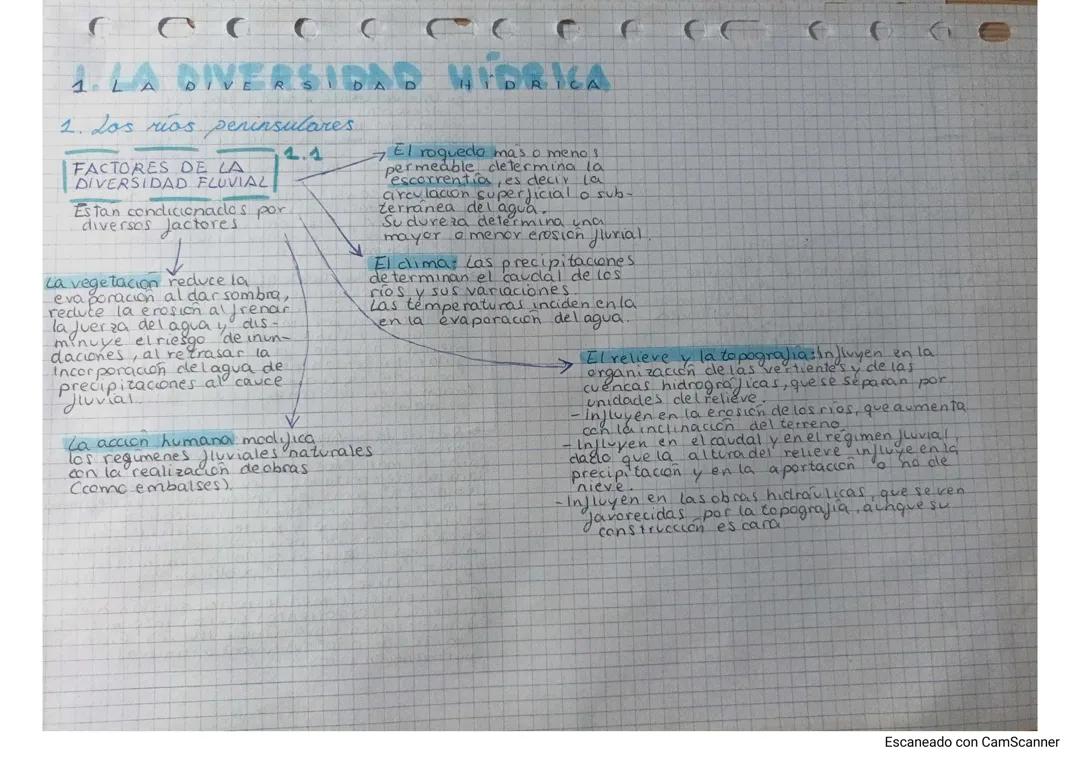 1. LA DIVERSIDAD HÍDRICA
1. Los ríos peninsulares
1.1
FACTORES DE LA
DIVERSIDAD FLUVIAL
Estan condicionados por
diversos factores
El roquedo mas o menos
permeable, determina la
escorrentía, es decir la
circulación superficial o sub-
terránea del agua.
Su dureza determina una
mayor o menor erosión fluvial.
El clima: Las precipitaciones
determinan el caudal de los
ríos y sus variaciones.
Las temperaturas inciden en la
en la evaporación del agua.
La vegetación reduce la
evaporación al dar sombra,
reduce la erosión al frenar
la fuerza del agua y dis-
minuye el riesgo de inun-
daciones, al retrasar la
incorporación del agua de
precipitaciones al cauce
fluvial.
El relieve y la topografía: Influyen en la
organización de las vertientes y de las
cuencas hidrográficas, que se separan por
unidades del relieve.
- Influyen en la erosión de los ríos, que aumenta
con la inclinación del terreno.
- Influyen en el caudal y en el régimen fluvial,
dado que la altura del relieve influye en la
precipitación y en la aportación o no de
nieve.
- Influyen en las obras hidráulicas, que se ven
favorecidas por la topografía, aunque su
construcción es cara
La acción humana modifica
los regímenes fluviales naturales
con la realización de obras
(como embalses).
Escaneado con CamScanner